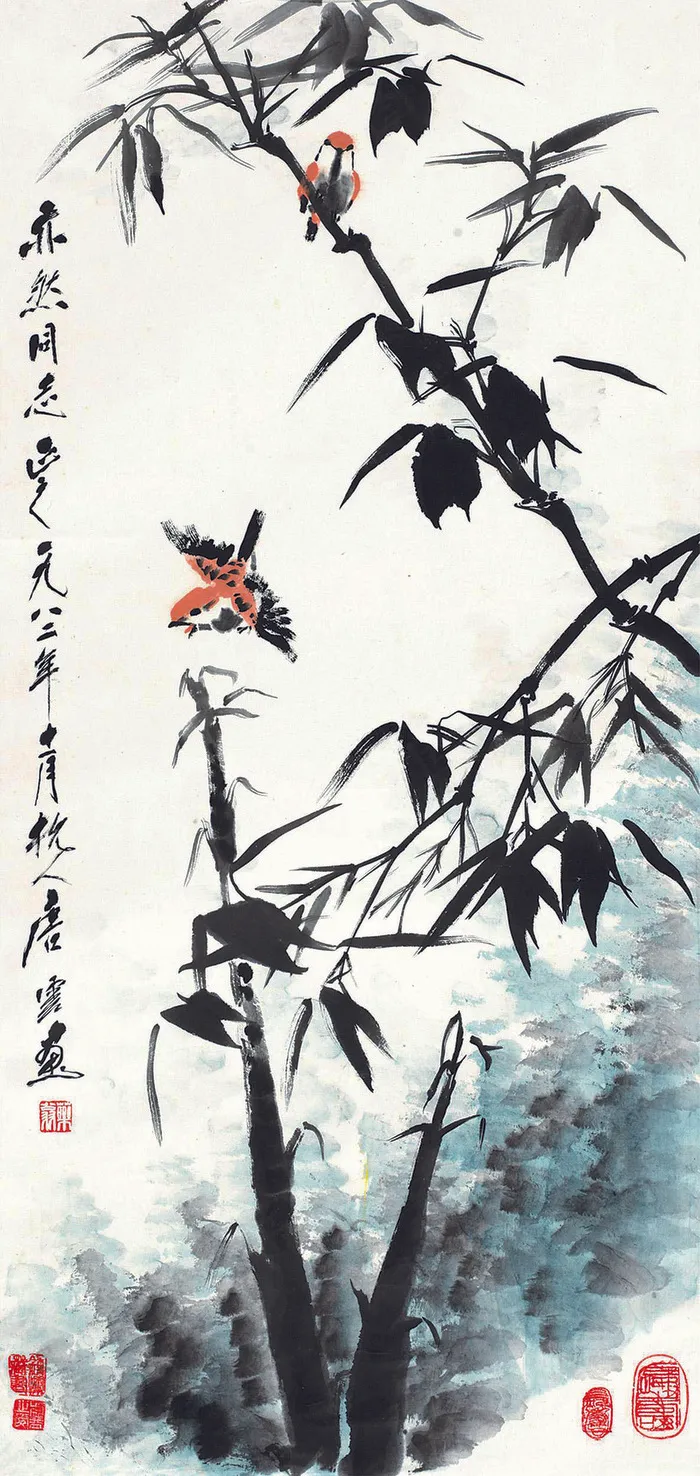 亦然同志正之一九八二年十月杭人唐雲画